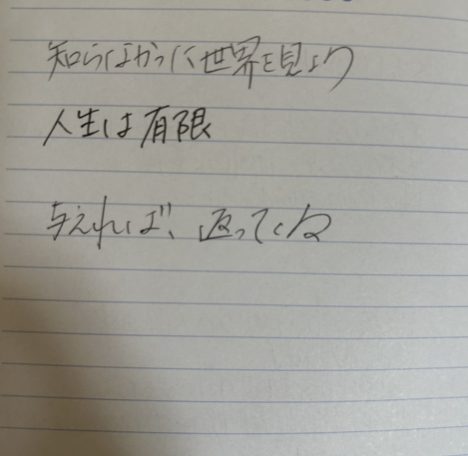 知らなかった世界を見よう
人生は有限
与えれば、返ってくる